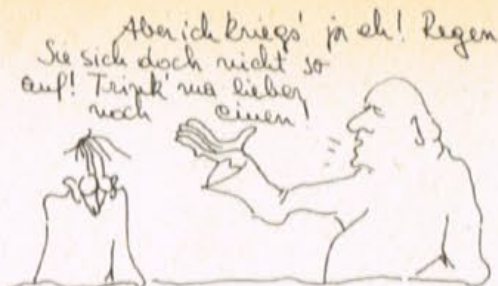 Aber ich kriegs' ja eh! Regen
Sie sich doch nicht so
auf! Trink' ma lieber
noch einen!